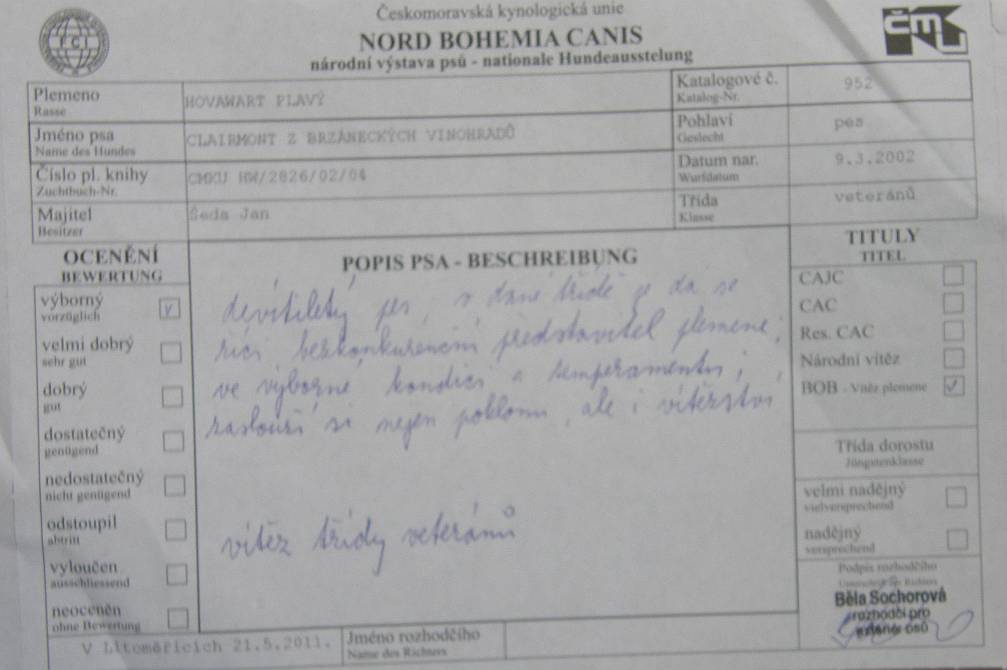 Českomoravská kynologická unie
NORD BOHEMIA CANIS
národní výstava psů - nationale Hundeausstelung
FCI
ČMKU
Plemeno
Rasse
HOVAWART PLAVÝ
Katalogové č.
Katalog-Nr.
952
Jméno psa
Name des Hundes
CLAIRMONT Z BRZÁNECKÝCH VINOHRADŮ
Pohlaví
Geslecht
pes
Číslo pl. knihy
Zuchtbuch-Nr.
CMKU HW/2826/02/04
Datum nar.
Wurfdatum
9.3.2002
Majitel
Besitzer
Šeda Jan
Třída
Klasse
veteránů
OCENĚNÍ
BEWERTUNG
výborný
vorzüglich
velmi dobrý
sehr gut
dobrý
gut
dostatečný
genügend
nedostatečný
nicht genügend
odstoupil
abtritt
vyloučen
ausschliessend
neoceněn
ohne Bewertung
POPIS PSA - BESCHREIBUNG
devítiletý pes, v dané třídě je dá se
říci bezkonkurenční představitel plemene,
ve výborné kondici a temperamentu,
zaslouží si nejen poklonu, ale i vítězství
vítěz třídy veteránů
TITULY
TITEL
CAJC
CAC
Res. CAC
Národní vítěz
BOB - Vítěz plemene
Třída dorostu
Jüngstenklasse
velmi nadějný
vielversprechend
nadějný
versprechend
Podpis rozhodčího
Běla Sochorová
rozhodčí pro
exteriér psů
V Litoměřicích 21.5.2011.
Jméno rozhodčího
Name des Richters